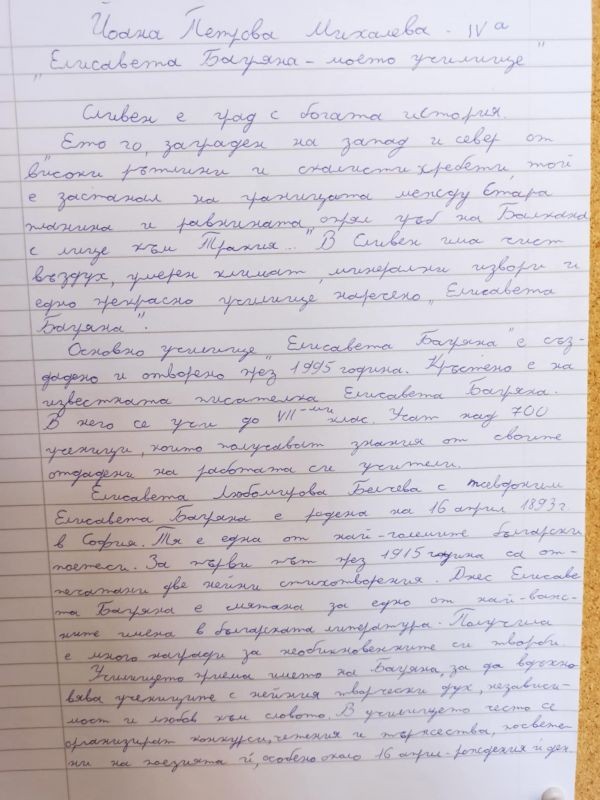 Йоана Петрова Михалева - IV а
"Елисавета Багряна - моето училище"
Сливен е град с богата история.
"Ето го, заграден на запад и север от
високи рътлини и скалисти хребети, той
е застанал на границата между Стара
планина и равнината, опрял гръб на Балкана
с лице към Тракия..." В Сливен има чист
въздух, умерен климат, минерални извори и
едно прекрасно училище наречено "Елисавета
Багряна".
Основно училище "Елисавета Багряна" е съз-
дадено и отворено през 1995 година. Кръстено е на
известната писателка Елисавета Багряна.
В него се учи до VII-ми клас. Учат над 700
ученици, които получават знания от своите
отдадени на работата си учители.
Елисавета Любомирова Белчева с псевдоним
Елисавета Багряна е родена на 16 април 1893 г.
в София. Тя е една от най-големите български
поетеси. За първи път през 1915 година са от-
печатани две нейни стихотворения. Днес Елисаве
та Багряна е смятана за едно от най-важ-
ните имена в българската литература. Получила
е много награди за необикновените си творби.
Училището приема името на Багряна, за да вдъхно
вява учениците с нейния творчески дух, независи-
мост и любов към словото. В училището често се
организират конкурси, четения и тържества, посвете
ни на поезията ѝ, особено около 16 април - рождения ѝ ден.